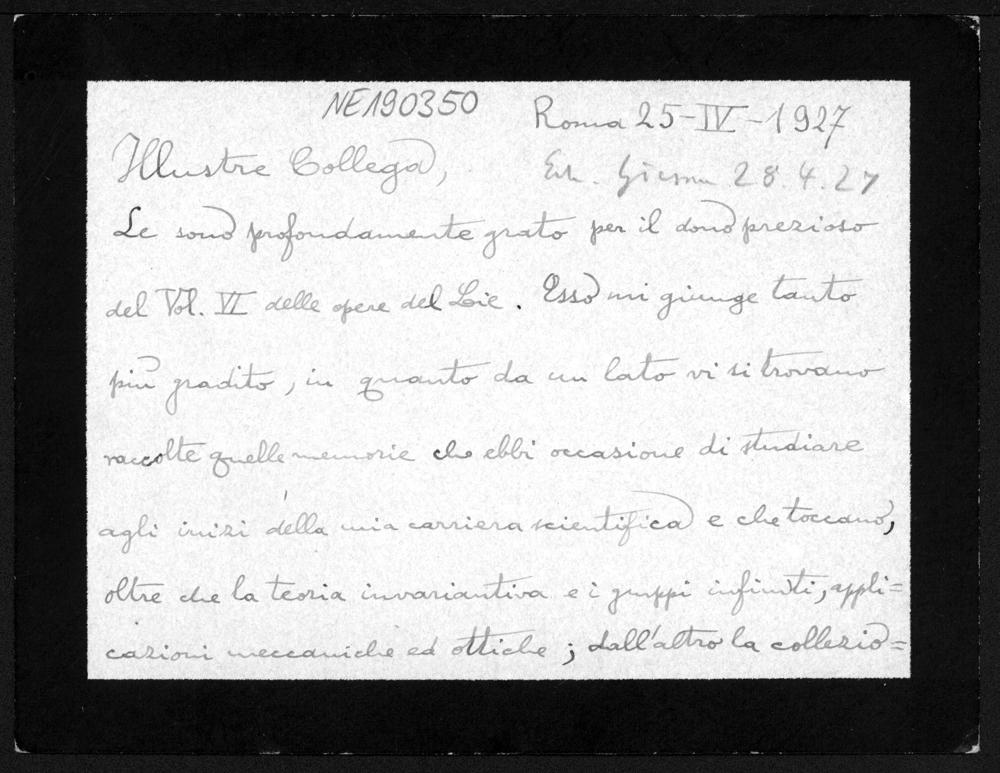 NE190350
Roma 25-IV-1927
Illustre Collega,
Erh. Giessen 28.4.27
Le sono profondamente grato per il dono prezioso
del Vol. VI delle opere del Lie. Esso mi giunge tanto
più gradito, in quanto da un lato vi si trovano
raccolte quelle memorie che ebbi occasione di studiare
agli inizi della mia carriera scientifica e che toccano,
oltre che la teoria invariantiva e i gruppi infiniti, appli=
cazioni meccaniche ed ottiche; dall'altro la collezio=